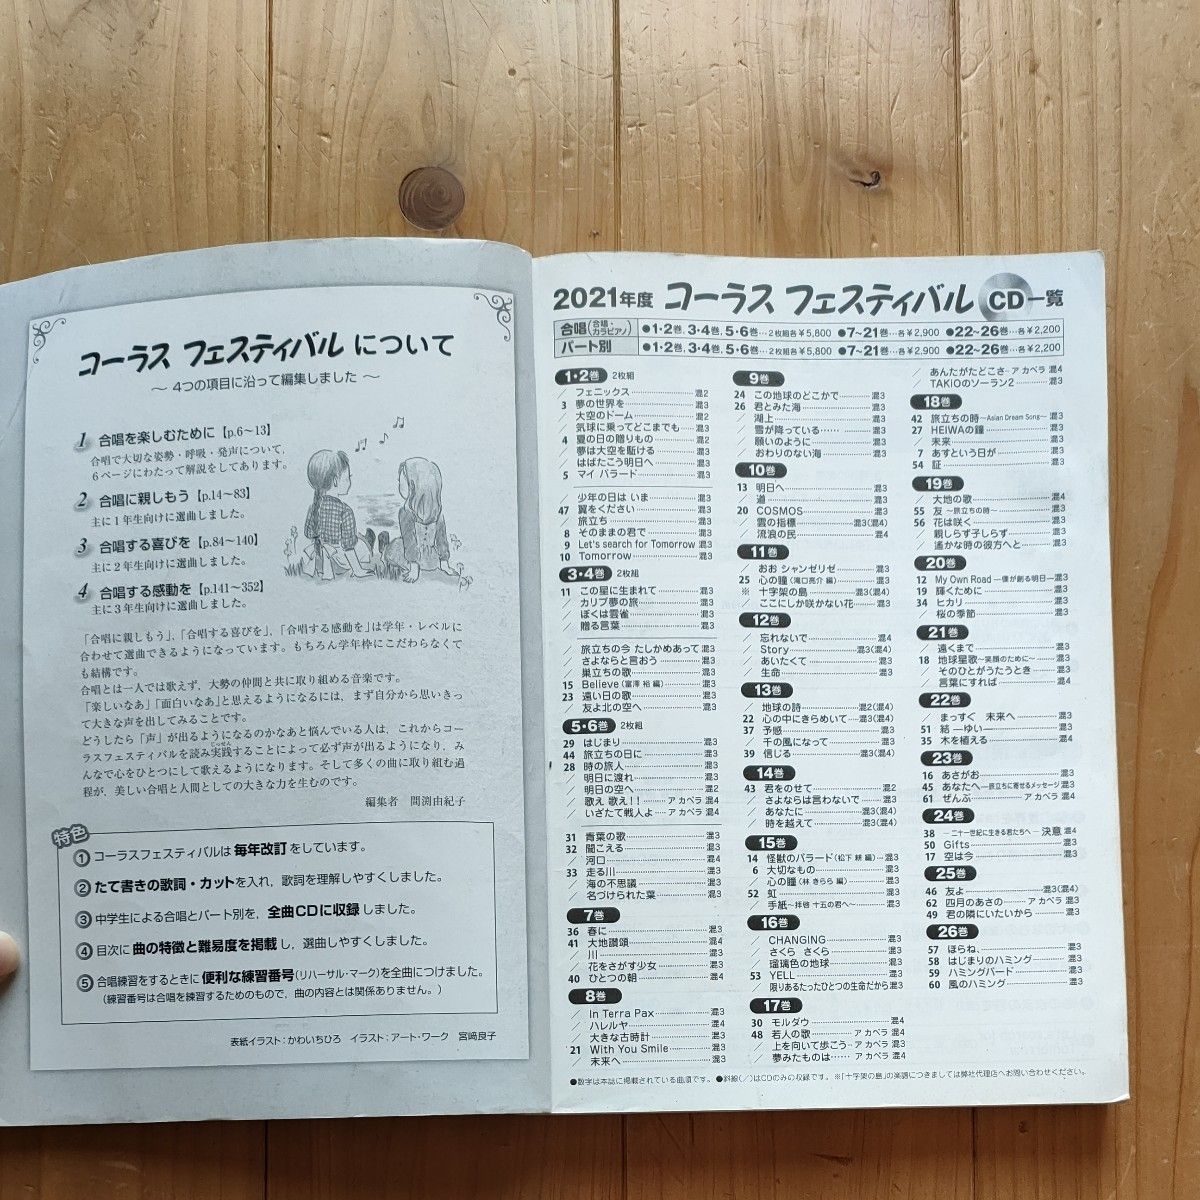 コーラス フェスティバル について
～ 4つの項目に沿って編集しました ～
1 合唱を楽しむために【p.6～13】
合唱で大切な姿勢・呼吸・発声について,
6ページにわたって解説をしてあります。
2 合唱に親しもう【p.14～83】
主に1年生向けに選曲しました。
3 合唱する喜びを【p.84～140】
主に2年生向けに選曲しました。
4 合唱する感動を【p.141～352】
主に3年生向けに選曲しました。
「合唱に親しもう」,「合唱する喜びを」,「合唱する感動を」は学年・レベルに
合わせて選曲できるようになっています。もちろん学年枠にこだわらなくて
も結構です。
合唱とは一人では歌えず, 大勢の仲間と共に取り組める音楽です。
「楽しいなあ」「面白いなあ」と思えるようになるには, まず自分から思いきっ
て大きな声を出してみることです。
どうしたら「声」が出るようになるのかなあと悩んでいる人は, これからコー
ラスフェスティバルを読み実践することによって必ず声が出るようになり, み
んなで心をひとつにして歌えるようになります。そして多くの曲に取り組む過
程が, 美しい合唱と人間としての大きな力を生むのです。
編集者 間渕由紀子
特色
① コーラスフェスティバルは 毎年改訂 をしています。
② たて書きの歌詞・カットを入れ, 歌詞を理解しやすくしました。
③ 中学生による合唱とパート別を, 全曲CDに収録 しました。
④ 目次に 曲の特徴と難易度を掲載 し, 選曲しやすくしました。
⑤ 合唱練習をするときに 便利な練習番号 (リハーサル・マーク) を全曲につけました。
(練習番号は合唱を練習するためのもので, 曲の内容とは関係ありません。)
表紙イラスト：かわいちひろ イラスト：アート・ワーク 宮﨑良子
2021年度 コーラス フェスティバル CD一覧
合唱(合唱・カラピアノ) ●1・2巻, 3・4巻, 5・6巻…2枚組各¥5,800 ●7～21巻…各¥2,900 ●22～26巻…各¥2,200
パート別 ●1・2巻, 3・4巻, 5・6巻…2枚組各¥5,800 ●7～21巻…各¥2,900 ●22～26巻…各¥2,200
1・2巻 2枚組
／ フェニックス 混2
3 夢の世界を 混3
／ 大空のドーム 混2
／ 気球に乗ってどこまでも 混3
4 夏の日の贈りもの 混2
／ 夢は大空を駆ける 混3
／ はばたこう明日へ 混3
5 マイ バラード 混3
／ 少年の日は いま 混3
47 翼をください 混3
／ 旅立ち 混3
8 そのままの君で 混3
9 Let's search for Tomorrow 混3
10 Tomorrow 混3
3・4巻 2枚組
11 この星に生まれて 混3
／ カリブ夢の旅 混3
／ ぼくは雲雀 混3
／ 贈る言葉 混3
／ 旅立ちの今 たしかめあって 混3
／ さよならと言おう 混3
／ 巣立ちの歌 混3
15 Believe (富澤 裕 編) 混3
23 遠い日の歌 混3
／ 友よ北の空へ 混3
5・6巻 2枚組
29 はじまり 混3
44 旅立ちの日に 混3
28 時の旅人 混3
／ 明日に渡れ 混3
／ 明日の空へ 混2
／ 歌え 歌え!! アカペラ 混4
／ いざたて戦人よ アカペラ 混4
31 青葉の歌 混3
32 聞こえる 混3
／ 河口 混4
33 走る川 混3
／ 海の不思議 混3
／ 名づけられた葉 混3
7巻
36 春に 混3
41 大地讃頌 混4
／ 川 混3
／ 花をさがす少女 混3
40 ひとつの朝 混4
8巻
／ In Terra Pax 混3
／ ハレルヤ 混4
／ 大きな古時計 混3
21 With You Smile 混3
／ 未来へ 混3
9巻
24 この地球のどこかで 混3
26 君とみた海 混3
／ 湖上 混3
／ 雪が降っている…… 混3
／ 願いのように 混3
／ おわりのない海 混3
10巻
13 明日へ 混3
／ 道 混3
20 COSMOS 混3
／ 雲の指標 混3(混4)
／ 流浪の民 混4
11巻
／ おお シャンゼリゼ 混3
25 心の瞳 (滝口亮介 編) 混3
※ 十字架の島 混3(混4)
／ ここにしか咲かない花 混3
12巻
／ 忘れないで 混4
／ Story 混3(混4)
／ あいたくて 混3
／ 生命 混3
13巻
／ 地球の詩 混2(混4)
22 心の中にきらめいて 混3(混4)
37 予感 混3
／ 千の風になって 混3
39 信じる 混3(混4)
14巻
43 君をのせて 混2
／ さよならは言わないで 混3
／ あなたに 混3(混4)
／ 時を越えて 混3(混4)
15巻
14 怪獣のバラード (松下 耕 編) 混3
6 大切なもの 混3
／ 心の瞳 (林 きらら 編) 混3
52 虹 混3
／ 手紙 ～拝啓 十五の君へ～ 混3
16巻
／ CHANGING 混3
／ さくら さくら 混3
／ 瑠璃色の地球 混3
53 YELL 混3
／ 限りあるたったひとつの生命だから 混3
17巻
30 モルダウ 混3(混4)
48 若人の歌 アカペラ 混3
／ 上を向いて歩こう アカペラ 混4
／ 夢みたものは…… アカペラ 混4
／ あんたがたどこさ アカペラ 混4
／ TAKIOのソーラン2 混3
18巻
42 旅立ちの時 ～Asian Dream Song～ 混3
27 HEIWAの鐘 混3
／ 未来 混3
7 あすという日が 混3
54 証 混3
19巻
／ 大地の歌 混4
55 友 ～旅立ちの時～ 混3
56 花は咲く 混3
／ 親しらず子しらず 混3
／ 遙かな時の彼方へと 混3
20巻
12 My Own Road ―僕が創る明日― 混3
19 輝くために 混3
34 ヒカリ 混3
／ 桜の季節 混3
21巻
／ 遠くまで 混3
18 地球星歌 ～笑顔のために～ 混3
／ そのひとがうたうとき 混3
／ 言葉にすれば 混4
22巻
／ まっすぐ 未来へ 混3
51 結 ―ゆい― 混3
35 木を植える 混4
23巻
16 あさがお 混3
45 あなたへ ―旅立ちに寄せるメッセージ 混3
61 ぜんぶ アカペラ 混4
24巻
38 ―二十一世紀に生きる君たちへ― 決意 混4
50 Gifts 混3
17 空は今 混3
25巻
46 友よ 混3(混4)
62 四月のあさの アカペラ 混3
49 君の隣にいたいから 混3
26巻
57 ほらね、 混3
58 はじまりのハミング 混3
59 ハミングバード 混3
60 風のハミング 混3
●数字は本誌に掲載されている曲順です。 ●斜線(／)はCDのみの収録です。 ※「十字架の島」の楽譜につきましては弊社代理店へお問い合わせください。